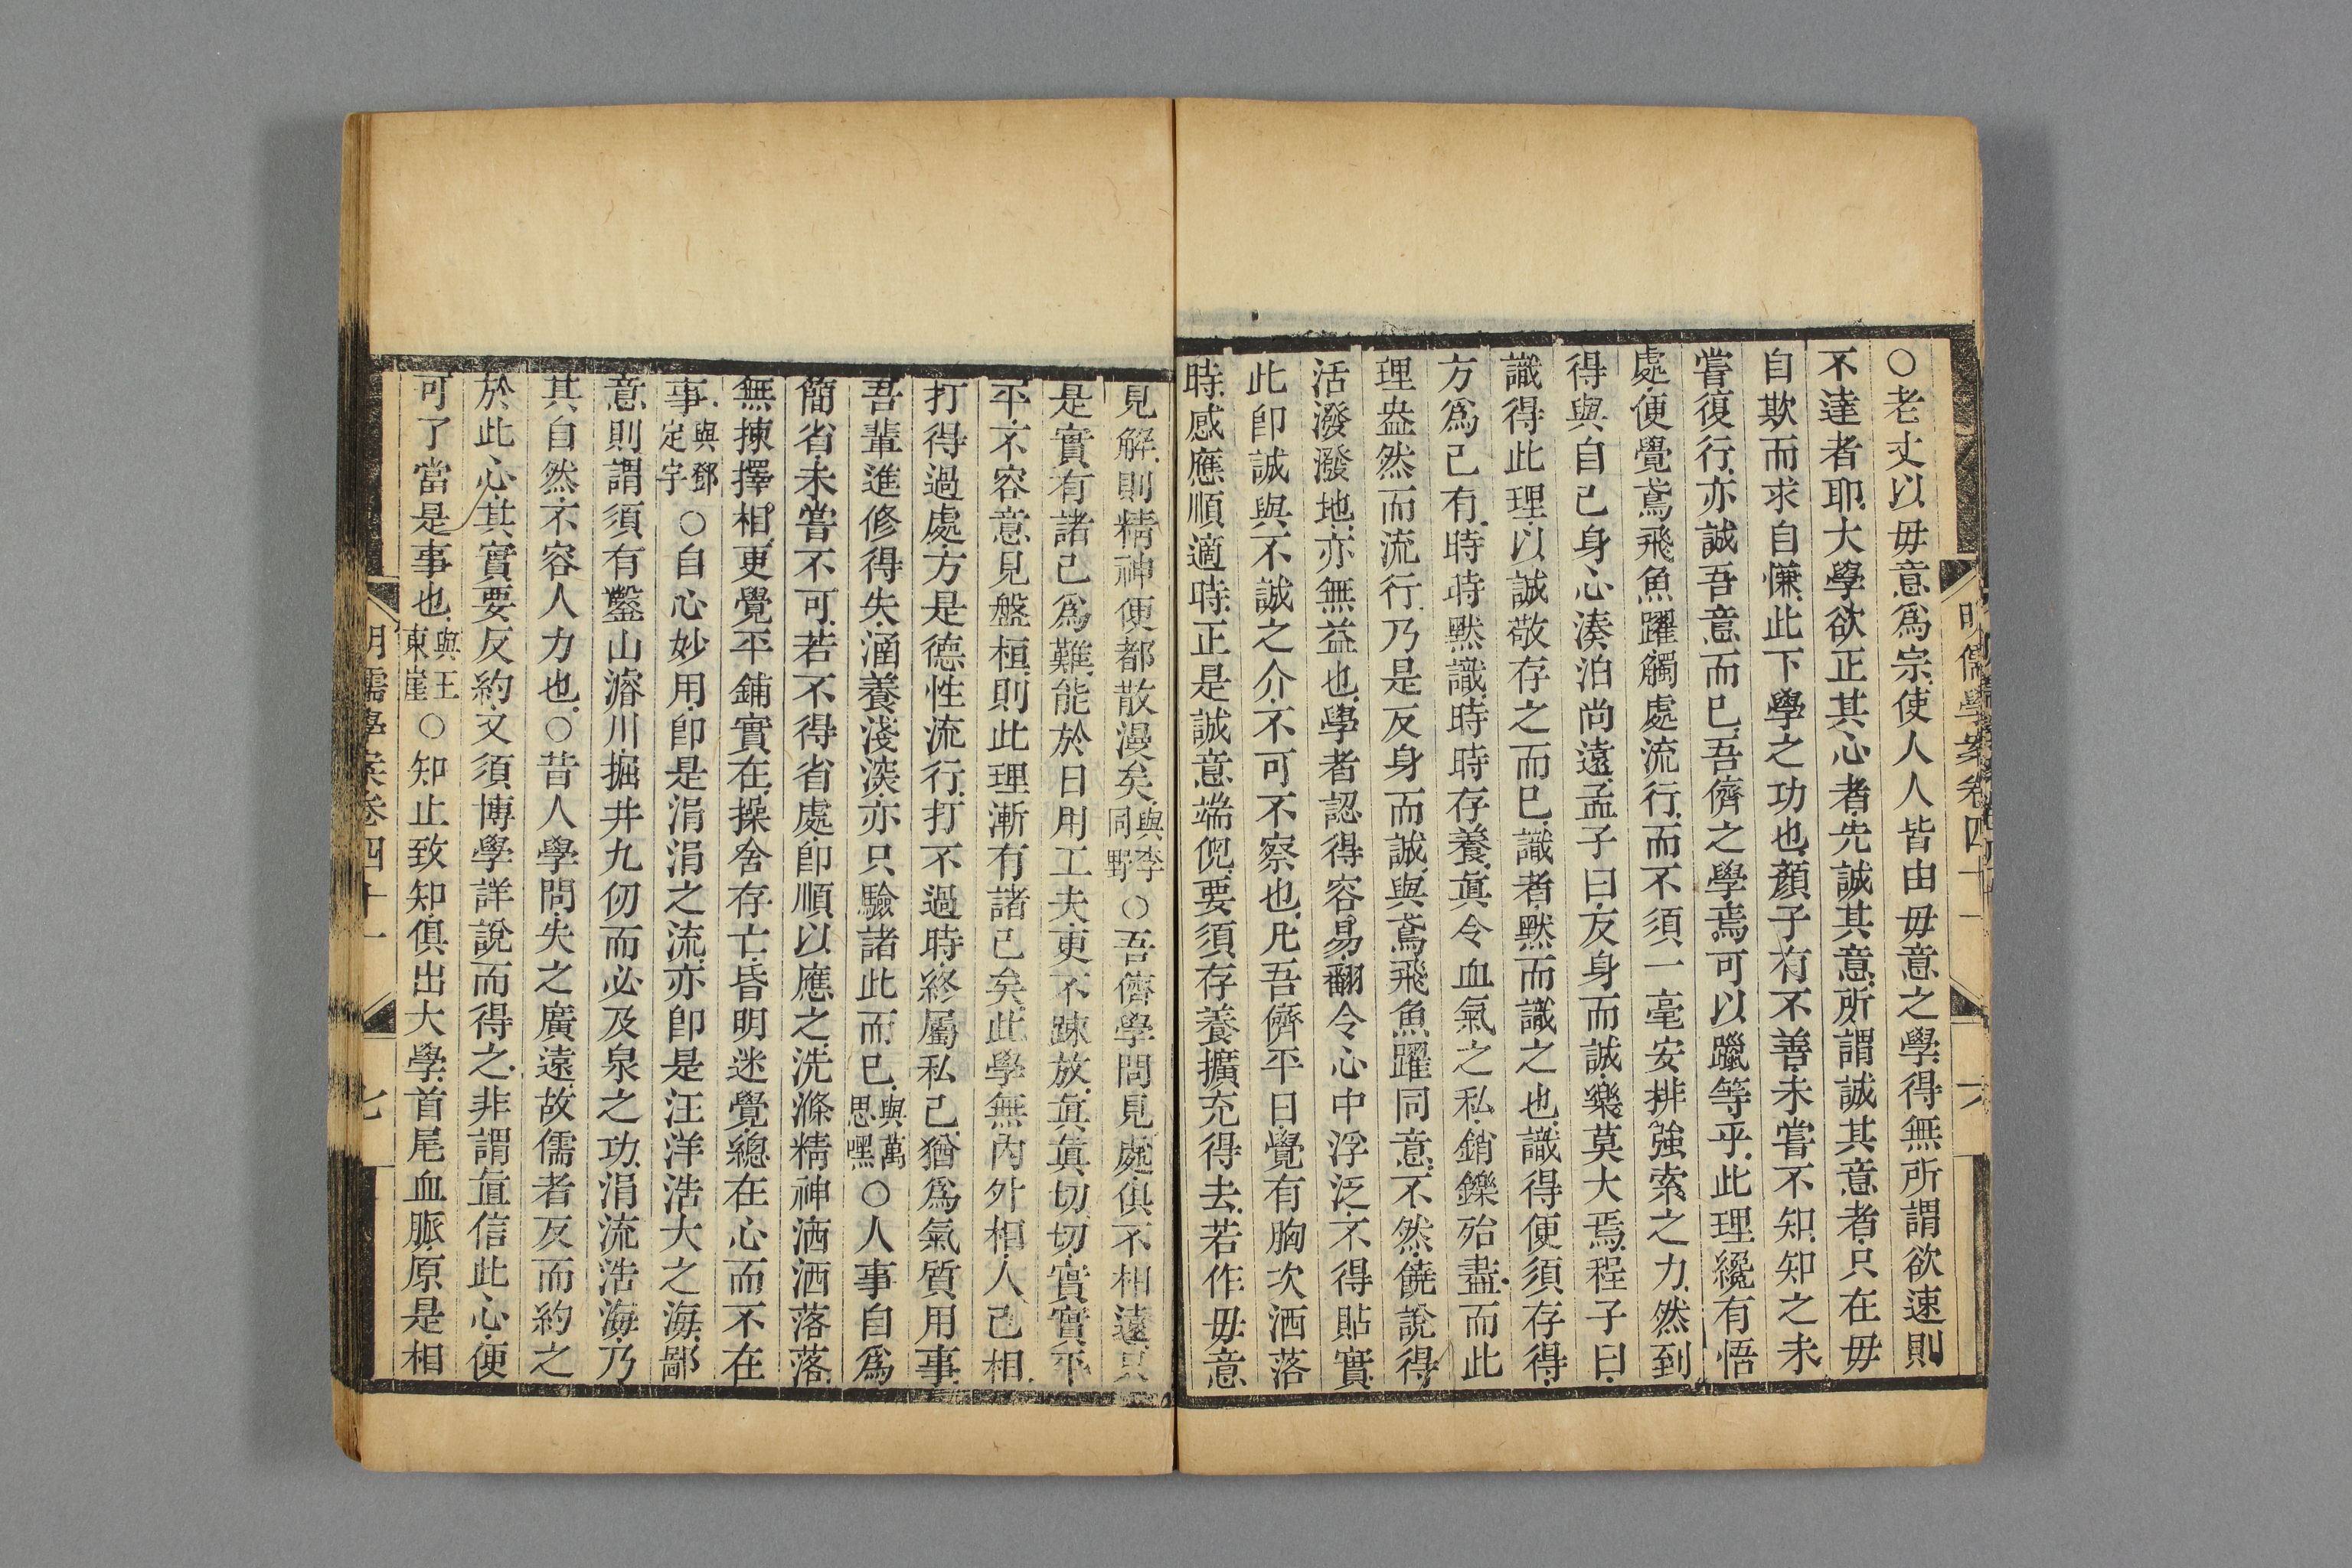 明儒學案卷四十一
六
○老丈以毋意爲宗使人人皆由毋意之學得無所謂欲速則
不達者耶大學欲正其心者先誠其意所謂誠其意者只在毋
自欺而求自慊此下學之功也顏子有不善未嘗不知知之未
嘗復行亦誠吾意而已吾儕之學焉可以躐等乎此理纔有悟
處便覺鳶飛魚躍觸處流行而不須一毫安排強索之力然到
得與自己身心湊泊尚遠孟子曰反身而誠樂莫大焉程子曰
識得此理以誠敬存之而已識者默而識之也識得便須存得
方爲已有時時默識時時存養眞令血氣之私銷鑠殆盡而此
理盎然而流行乃是反身而誠與鳶飛魚躍同意不然饒說得
活潑潑地亦無益也學者認得容易翻令心中浮泛不得貼實
此卽誠與不誠之介不可不察也凡吾儕平日覺有胸次洒落
時感應順適時正是誠意端倪要須存養擴充得去若作毋意
見解則精神便都散漫矣與李同野○吾儕學問見處俱不相遠只
是實有諸己爲難能於日用工夫更不踈放眞眞切切實實平
平不容意見盤桓則此理漸有諸己矣此學無內外相人己相
打得過處方是德性流行打不過時終屬私己猶爲氣質用事
吾輩進修得失涵養淺深亦只驗諸此而已與萬思嘿○人事自爲
簡省未嘗不可若不得省處卽順以應之洗滌精神洒洒落落
無揀擇相更覺平鋪實在操舍存亡昏明迷覺總在心而不在
事與鄧定宇○自心妙用卽是涓涓之流亦卽是汪洋浩大之海鄙
意則謂須有鑿山濬川掘井九仞而必及泉之功涓流浩海乃
其自然不容人力也○昔人學問失之廣遠故儒者反而約之
於此心其實要反約又須博學詳說而得之非謂直信此心便
可了當是事也與王東崖○知止致知俱出大學首尾血脈原是相
明儒學案卷四十一
七